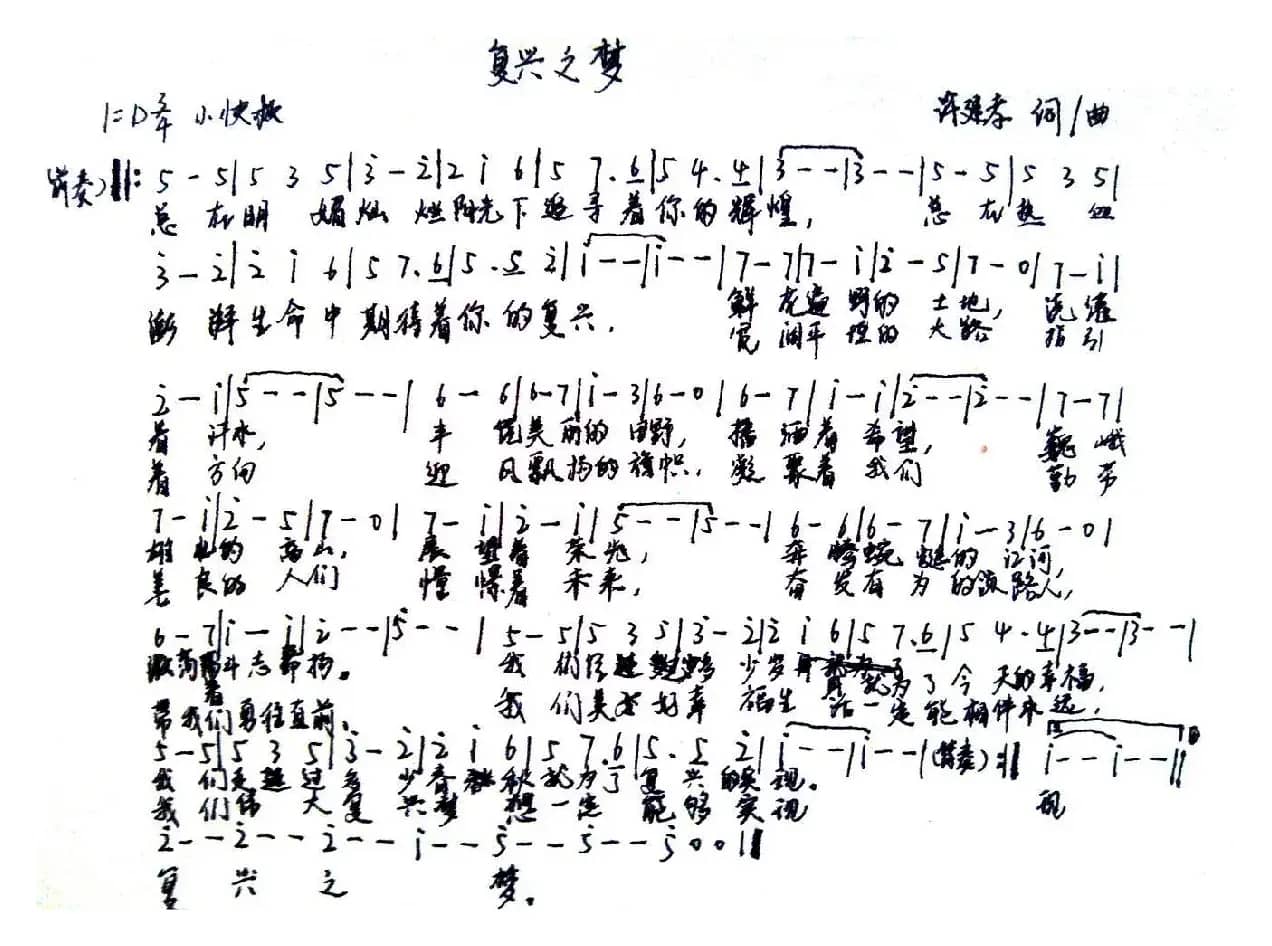 复兴之梦
1=D 3/4 小快板 许建孝 词/曲
(前奏) ‖: 5 - 5|5 3 5|3̇ - 2̇|2̇ 1̇ 6|5 7. 6|5 4. 4|3 - -|3 - -|5 - 5|5 3 5|
总 在明 媚灿 烂阳光下追寻着你的辉煌, 总 在热 血
3̇ - 2̇|2̇ 1̇ 6|5 7. 6|5 . 5 2̇|1̇ - -|1̇ - -|7 - 7|7 - 1̇|2̇ - 5|7 - 0|7 - 1̇|
澎 湃生命中期待着你的复兴, 鲜 花遍 野的 土地, 浇灌
宽 阔平 坦的 大路 指引
2̇ - 1̇|5 - -|5 - -| 6 - 6|6 - 7|1̇ - 3|6 - 0|6 - 7|1̇ - 1̇|2̇ - -|2̇ - -|7 - 7|
着 汗水, 丰 饶美丽的 田野, 播 洒着 希望, 巍 峨
着 方向 迎 风飘扬的旗帜, 凝 聚着 我们 勤 劳
7 - 1̇|2̇ - 5|7 - 0| 7 - 1̇|2̇ - 1̇|5 - -|5 - -| 6 - 6|6 - 7|1̇ - 3|6 - 0|
雄 壮的 高山, 展 望着 荣光, 奔 腾蜿 蜒的 江河,
善 良的 人们 憧 憬着 未来, 奋 发有 为 的领路人,
6 - 7|1̇ - 1̇|2̇ - -|5 - -| 5 - 5|5 3 5|3̇ - 2̇|2̇ 1̇ 6|5 7. 6|5 4. 4|3 - -|3 - -|
斗志昂扬。 我 们 少岁 就为了今 天的幸福,
着
带 我们勇往直前。 我 们美 好幸 福生 活一定能相伴永远,
5 - 5|5 3 5|3̇ - 2̇|2̇ 1̇ 6|5 7. 6|5 . 5 2̇|1̇ - -|1̇ - -|(前奏) :‖ 1̇ - - 1̇ - -‖
我 们走 过多 少春 秋就为了复兴的实现。
我 们伟 大复 兴梦 想一定 能够实现 现
2̇ - - 2̇ - - 2̇ - - 1̇ - - 5 - - 5 - - 5 0 0‖
复 兴 之 梦。